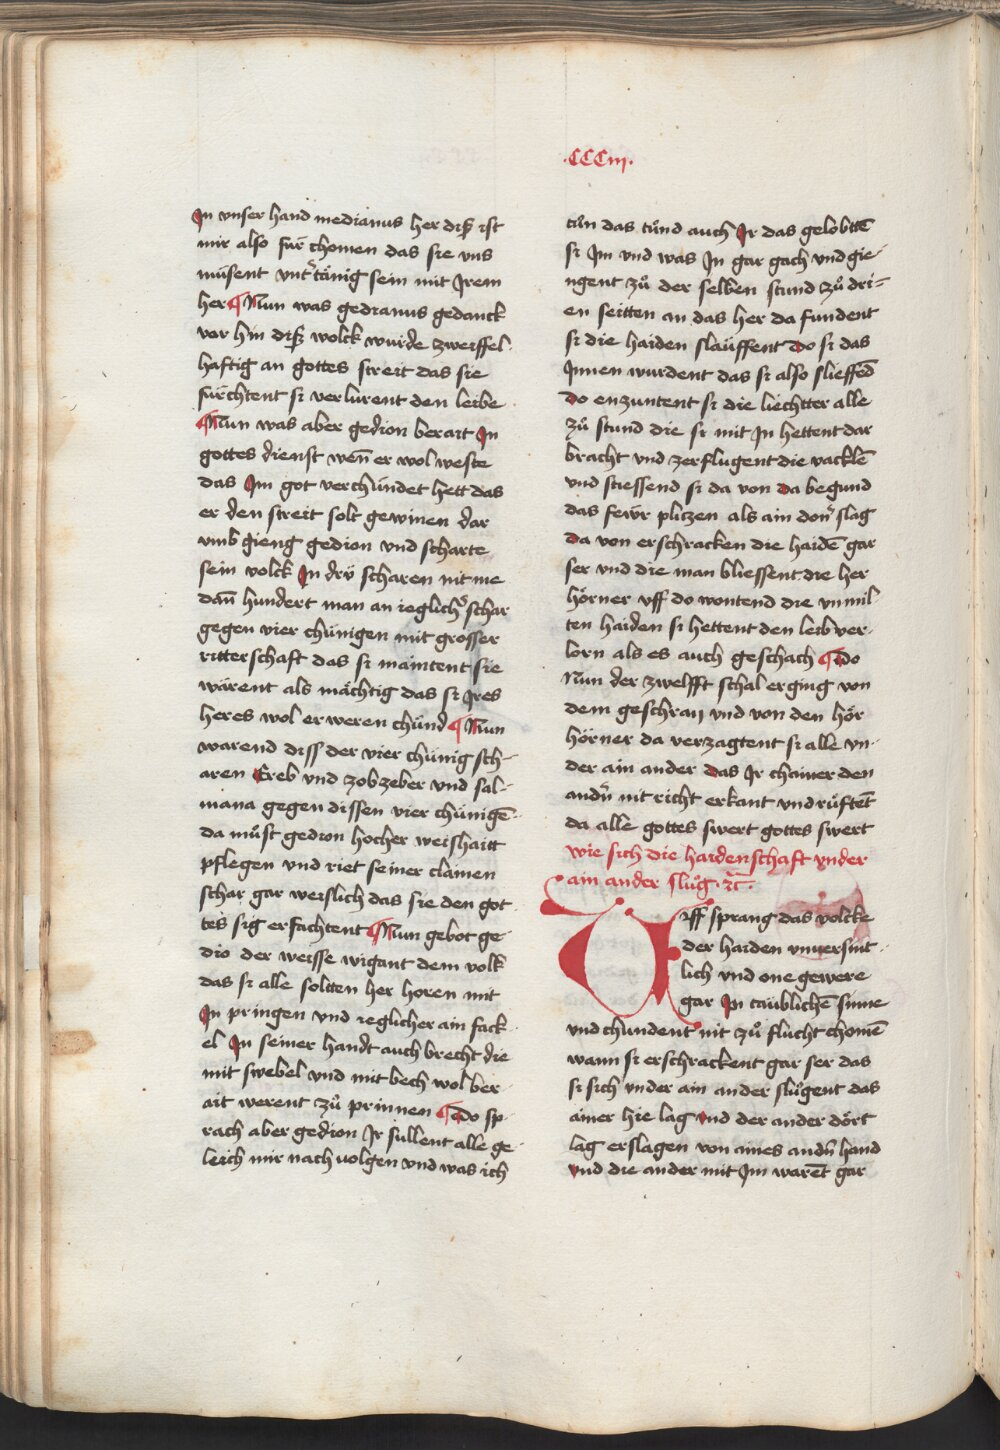 .CCCiij.
In vnser hand medianus her diß ist
mir also für chomen das sie vns
müsent vntertänig sein mit Irem
her ¶ Nun was gedianus gedanck
vor hin diß wolck wurde zweiffel
haftig an gottes streit das sie
fürchtent si verlurent den leibe
¶ Nun was aber gedion berait In
gottes dienst wen̄ er wol weste
das Im got verchündet hett das
er den streit solt gewinen dar
vmb gieng gedion vnd scharte
sein volck In drÿ scharen nit me
dan̄ hundert man an ieglicher schar
gegen vier chünigen mit grosser
ritterschaft das si maintent sie
wärent als mächtig das si Ires
heres wol erweren chünd ¶ Nun
warend diss der vier chünig sch-
aren Ereb vnd zob zeber vnd sal-
mana gegen dissen vier chünigē
da müst gedion hocher weishaitt
pflegen vnd riet seiner clainen
schar gar weislich das sie den got
tes sig erfachtent ¶ Nun gebot ge
dio der weisse wigant dem volk
das si alle soltten her horen mit
In pringen vnd ieglicher ain fack
el In seiner handt auch brecht die
mit swebel vnd mit bech wol ber
ait werent zů prinnen ¶ Do sp-
rach aber gedion Ir sullent alle ge
leich mir nach uolgen vnd was ich
tůn das tůnd auch Ir das gelobttē
si Im vnd was In gar gach vnd gie-
ngent zů der selben stund zů dri-
en seitten an das her da fundent
si die haiden slauffent do si das
Innen wurdent das si also slieffēd
do enzuntent si die liechtter alle
zů stund die si mit In hettent dar
bracht vnd zerslugent die vacklē
vnd stiessend si da von da begund
das fewr pliczen als ain don̄ slag
da von erschracken die haidē gar
ser vnd die man bliessent die her
hörner vff do wontend die vnmil-
ten haiden si hettent den leib ver-
lorn als es auch geschach ¶ Do
Nun der zwelfft schal erging von
dem geschray vnd von den hör
hörner da verzagtent si alle vn-
der ain ander das Ir chainer den
andn̄ nit richt erkant vnd rüftēt
da alle gottes swert gottes swert
wie sich die haidenschaft vnder
ain ander slůg ꝛc̄.
Uff sprang das volcke
der haiden vnuersint
lich vnd one gewere
gar In täublichē sinne
vnd chundent nit zů flucht chomē
wann si erschrackent gar ser das
si sich vnder ain ander slůgent das
ainer hie lag vnd der ander dört
lag erslagen von aines andn̄ hand
vnd die ander mit Im warēt gar